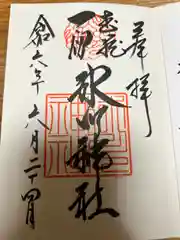 奉拝
武蔵
一宮
氷川神社
令六年六月二十四日